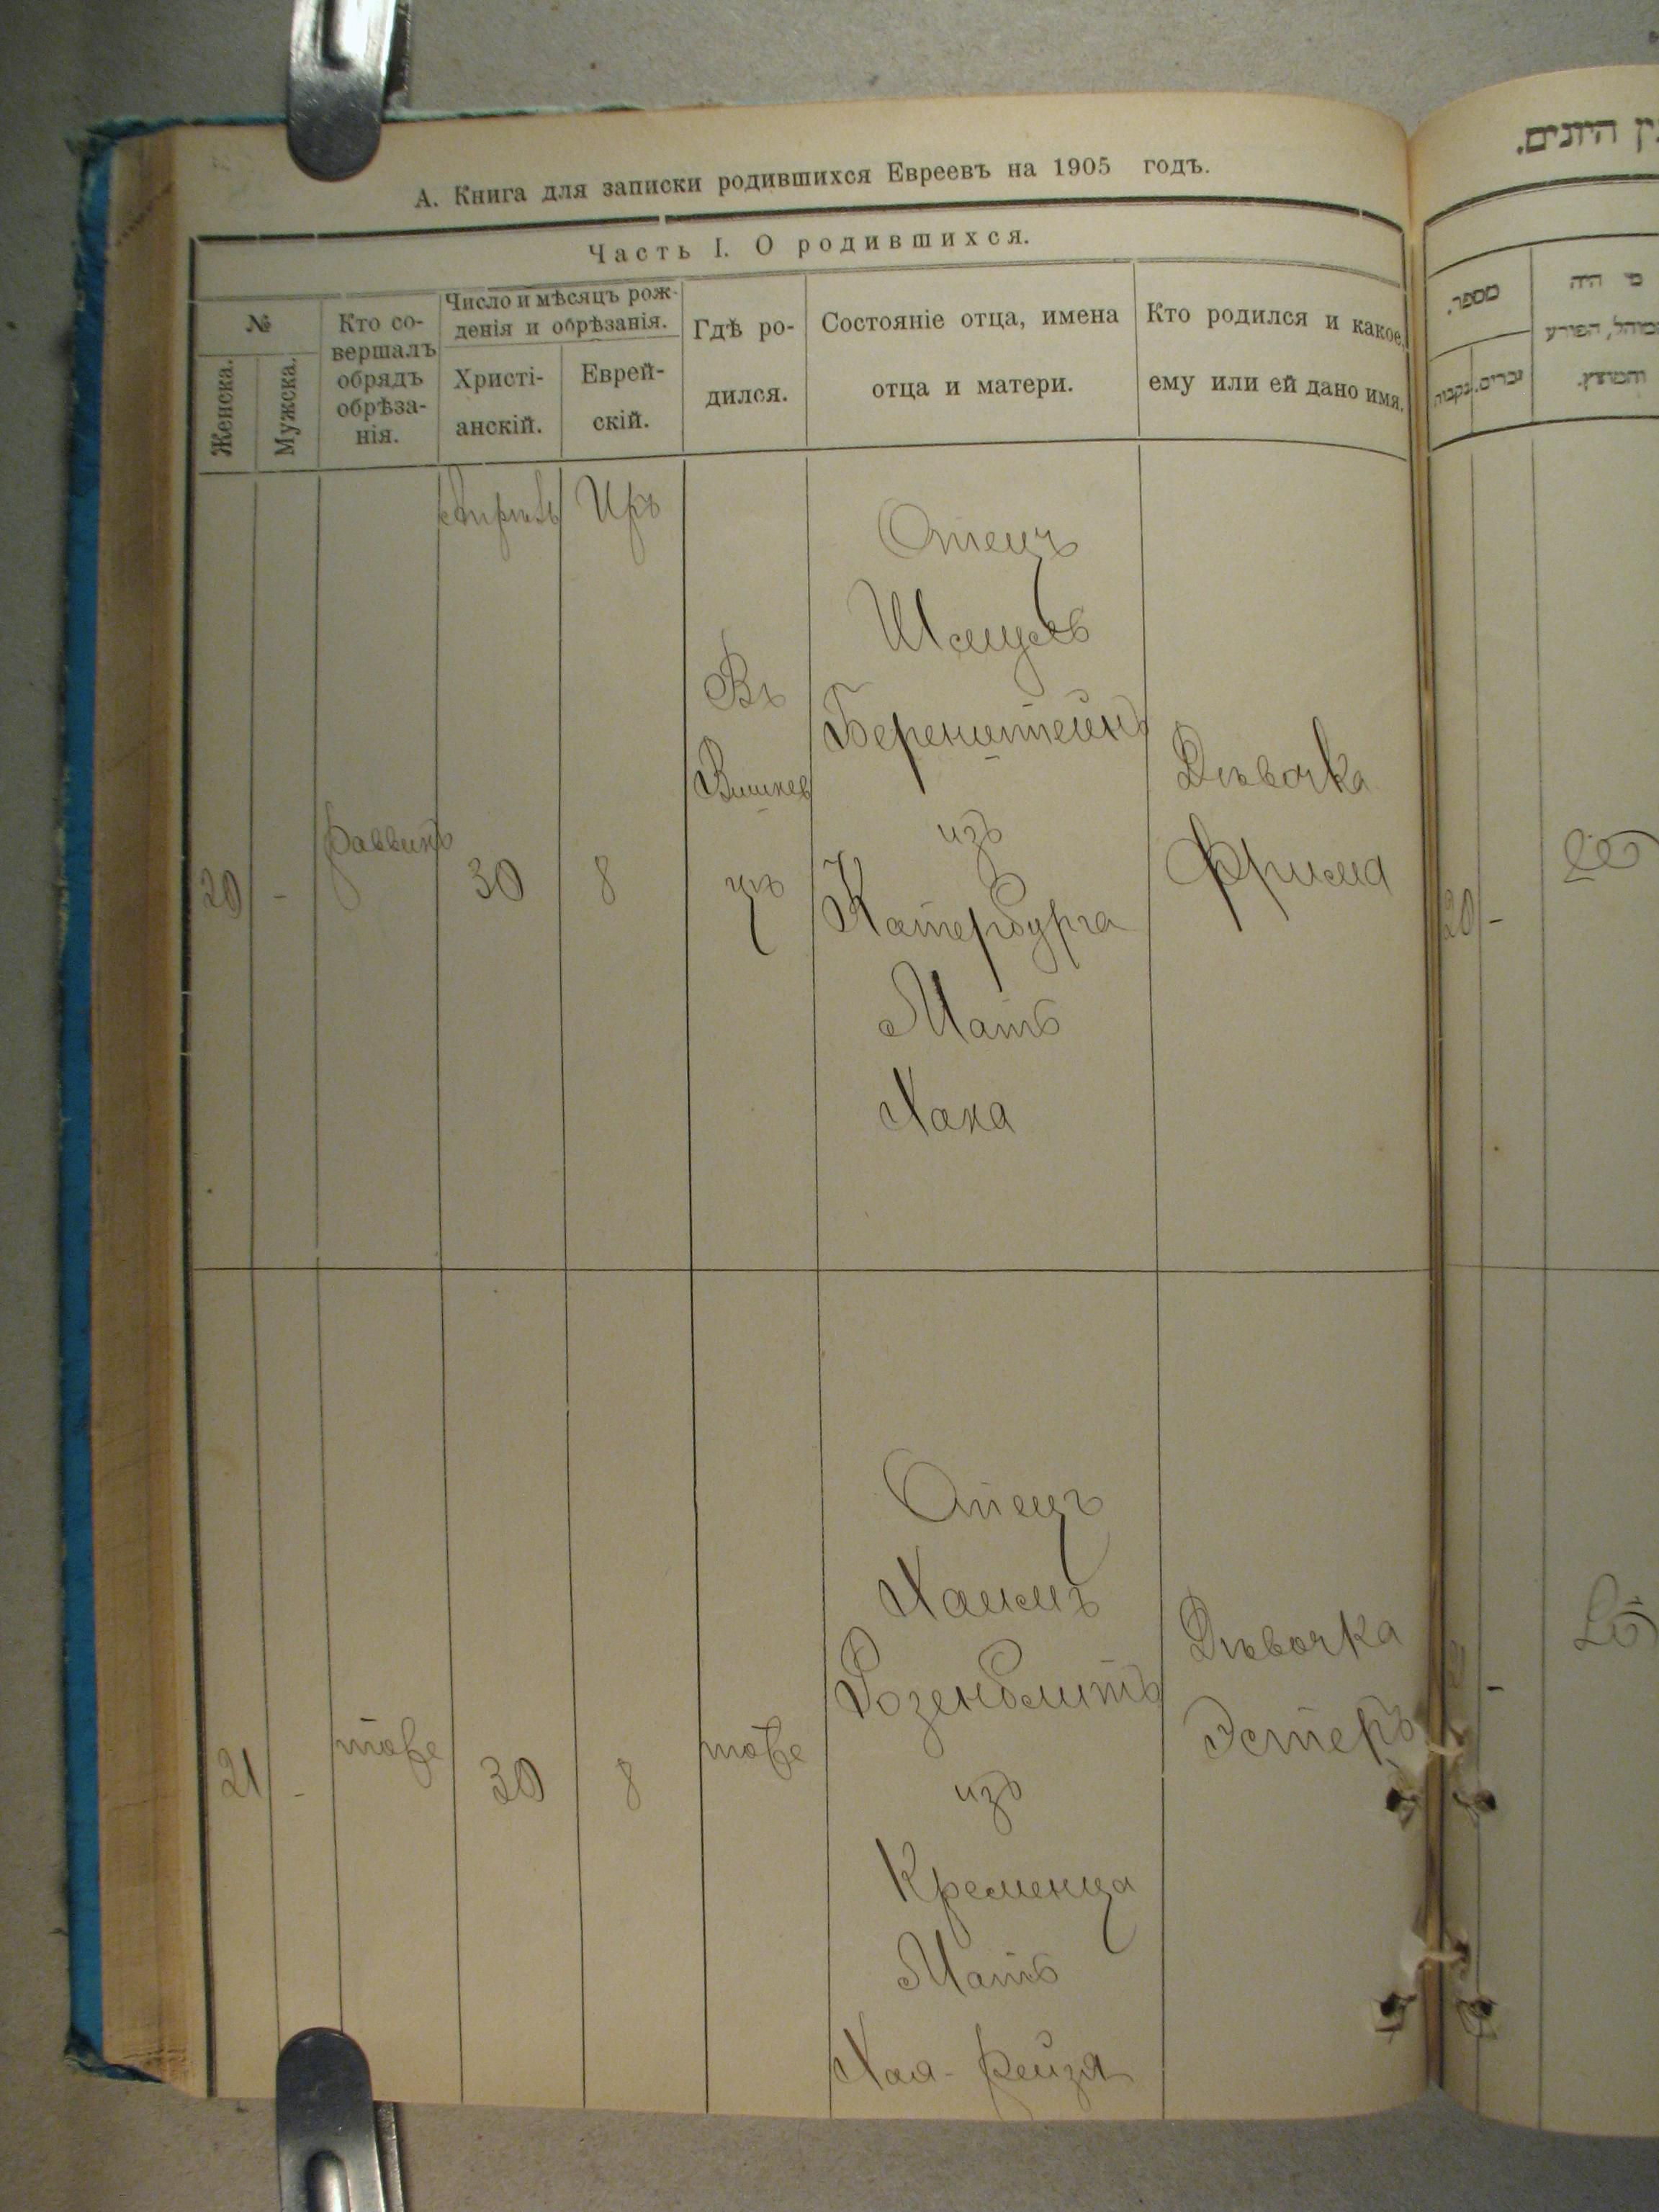 А. Книга для записки родившихся Евреевъ на 1905 годъ.
Часть I. О родившихся.
№
Женска.
Мужска.
Кто со-
вершалъ
обрядъ
обрѣза-
нія.
Число и мѣсяцъ рож-
денія и обрѣзанія.
Христі-
анскій.
Еврей-
скій.
Гдѣ ро-
дился.
Состояніе отца, имена
отца и матери.
Кто родился и какое
ему или ей дано имя.
Апрѣль
Иръ
20
-
раввинъ
30
8
Въ
Вишнев
цѣ
Отецъ
Шмуль
Беренштейнъ
изъ
Катербурга
Мать
Хана
Дѣвочка
Фрима
21
-
тоже
30
8
тоже
Отецъ
Хаимъ
Розенблитъ
изъ
Кременца
Мать
Хая-Рейзя
Дѣвочка
Эстеръ
מספר.
זכרים.
נקבות
מי היה
המוהל, הפורע
והמוצץ.
20
-
-